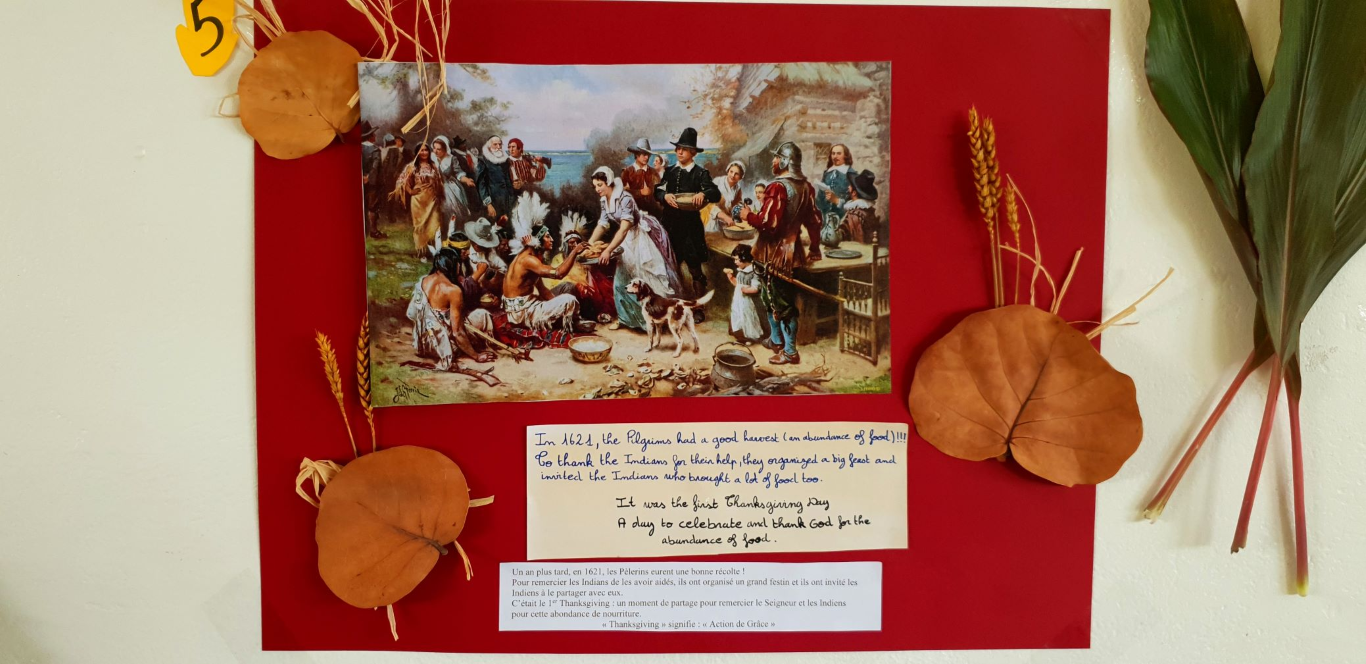 5
In 1621, the Pilgrims had a good harvest (an abundance of food)!!!
To thank the Indians for their help, they organized a big feast and
invited the Indians who brought a lot of food too.
It was the first Thanksgiving Day
A day to celebrate and thank God for the
abundance of food.
Un an plus tard, en 1621, les Pèlerins eurent une bonne récolte !
Pour remercier les Indians de les avoir aidés, ils ont organisé un grand festin et ils ont invité les
Indiens à le partager avec eux.
C'était le 1er Thanksgiving : un moment de partage pour remercier le Seigneur et les Indiens
pour cette abondance de nourriture.
« Thanksgiving » signifie : « Action de Grâce »